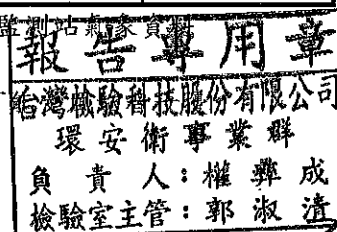 監測站氣象資料
報告專用章
台灣檢驗科技股份有限公司
環安衛事業群
負責人：權彝成
檢驗室主管：郭淑清